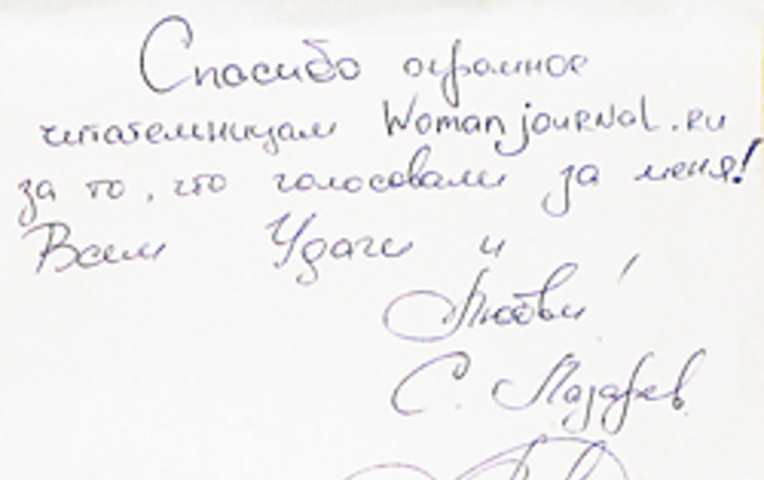 Спасибо огромное
читательницам Womanjournal.ru
за то, что голосовали за меня!
Всем Удачи и
Любви!
С. Лазарев